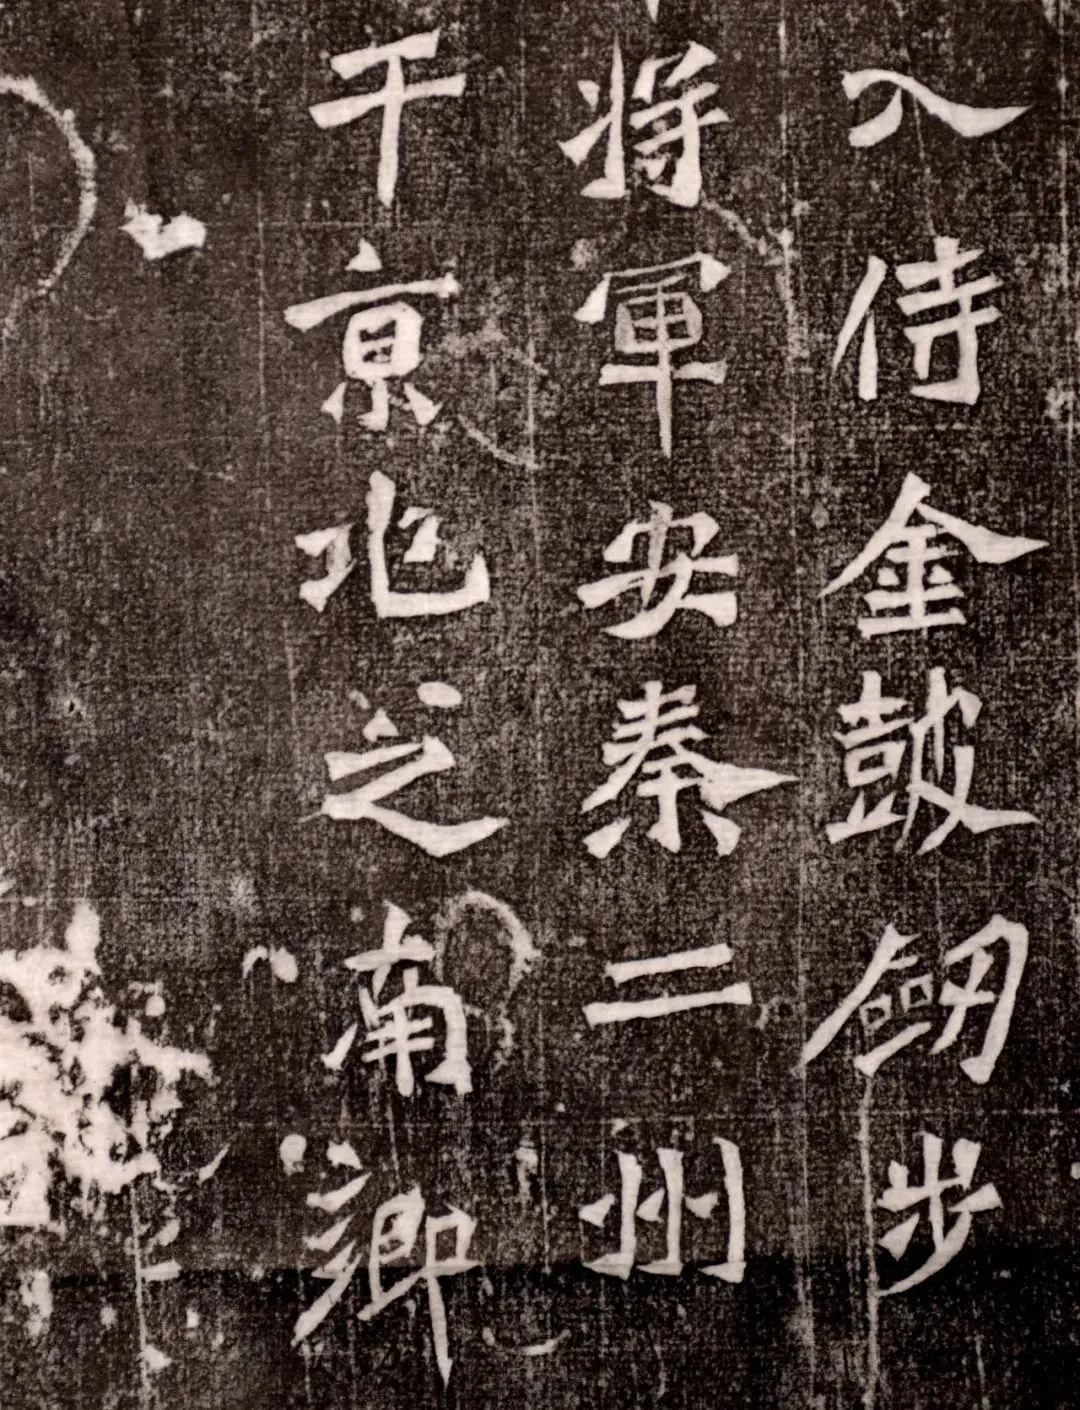 入侍金皷劒步
將軍安秦二州
于京兆之南鄉